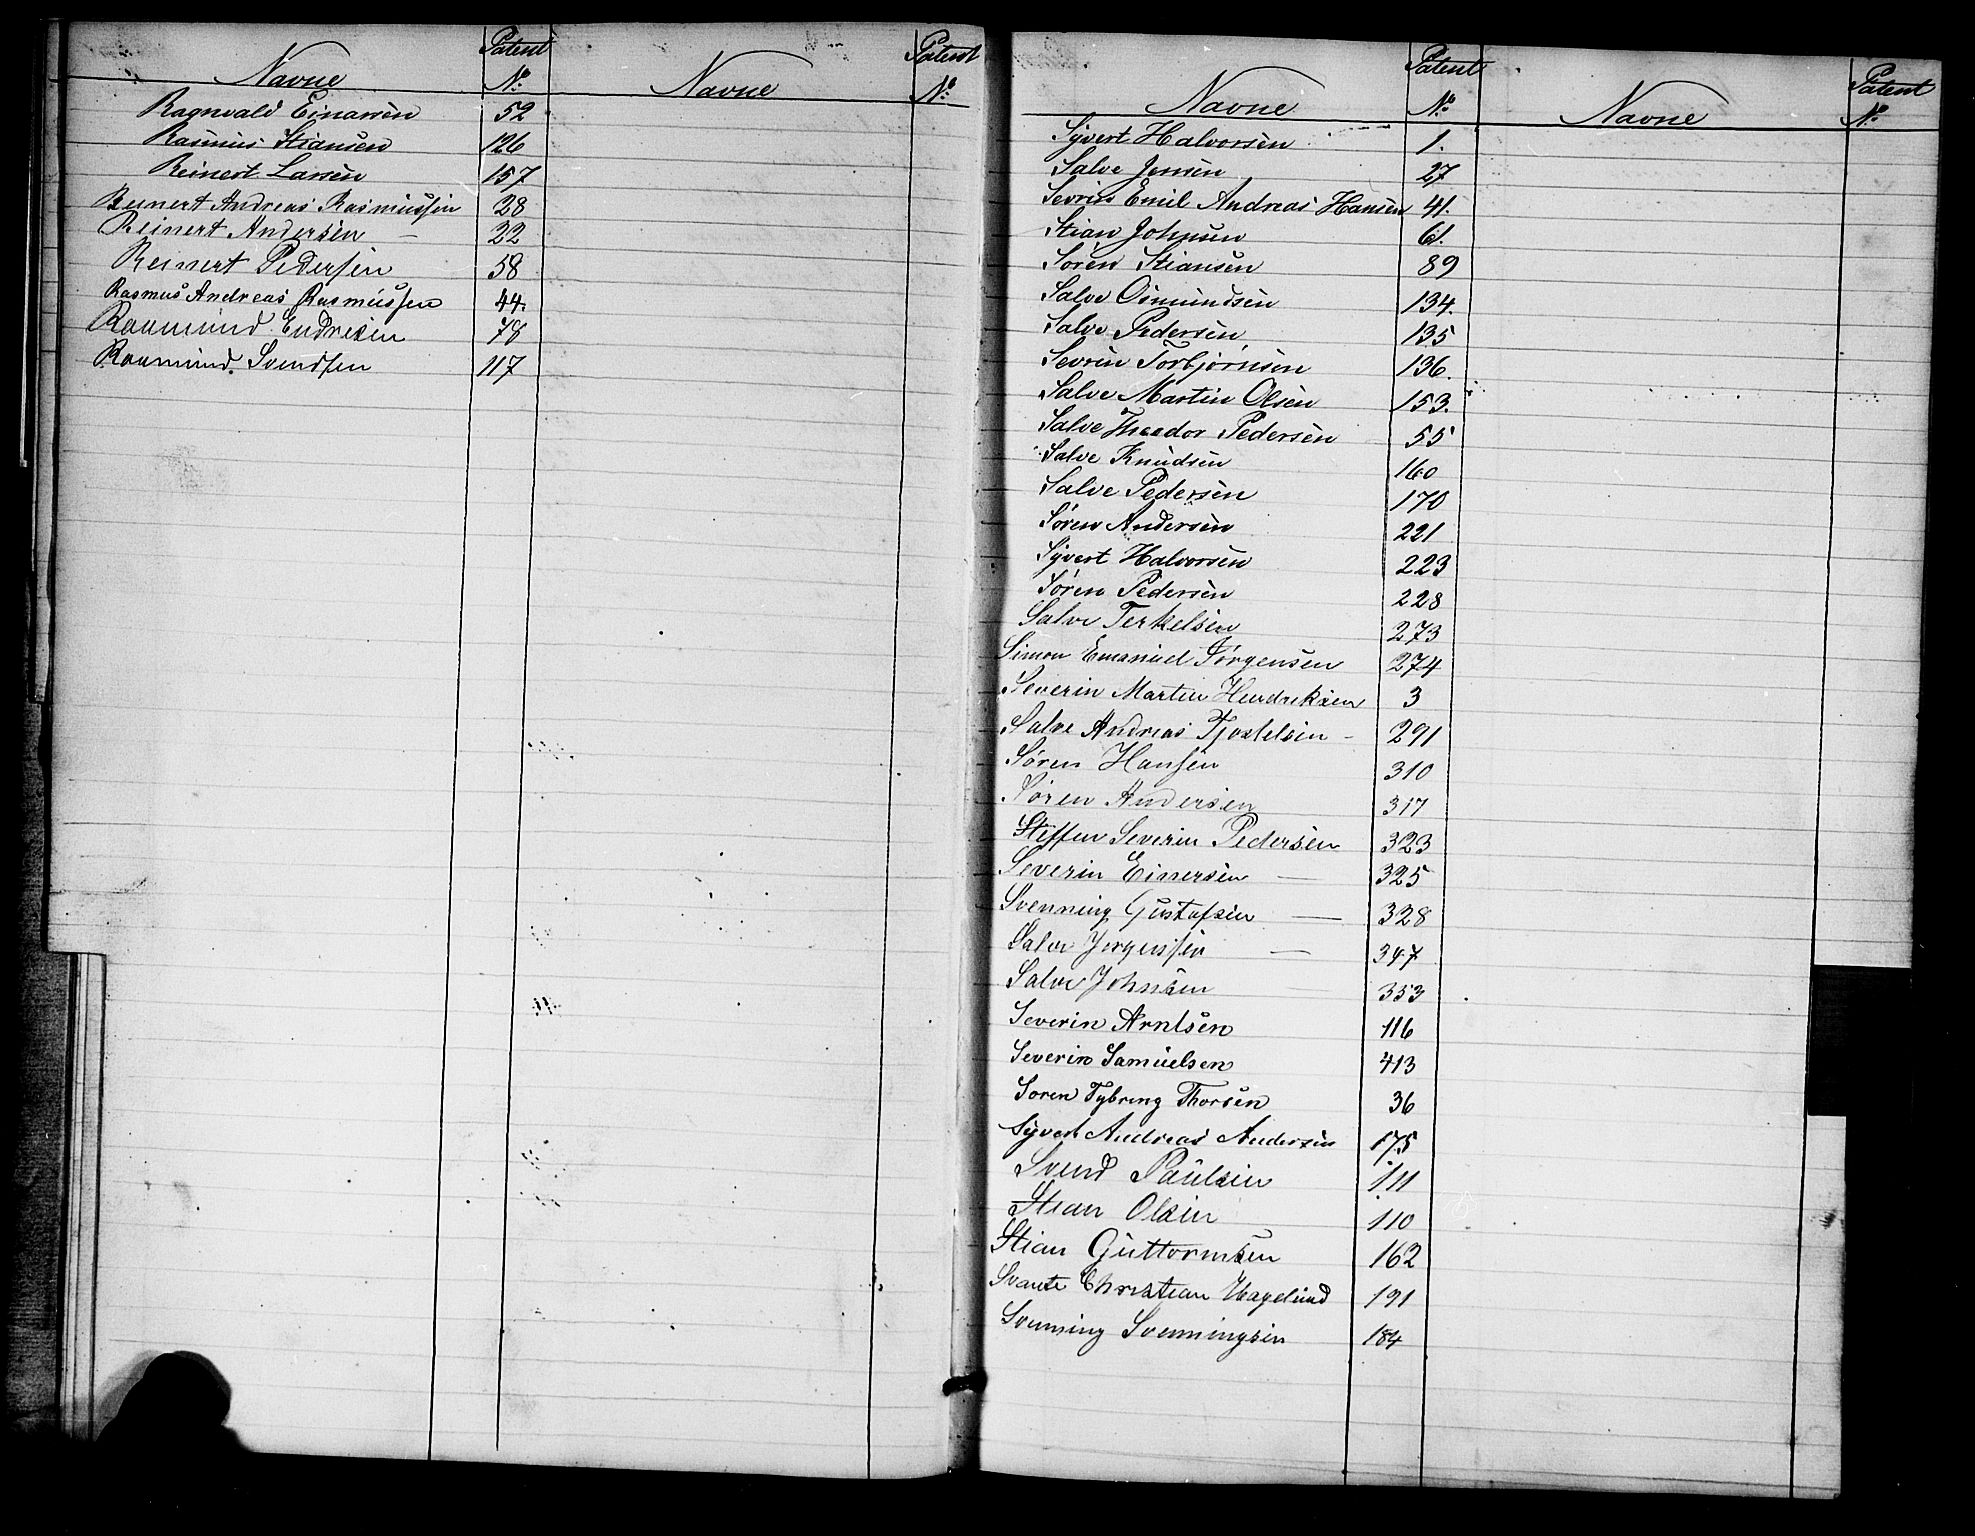 Navne Patent No. Navne Patent No.
Ragnvald Einarsen 52
Rasmus Stiansen 126
Reinert Larsen 157
Reinert Andreas Rasmussen 28
Reinert Andersen 22
Reinert Pedersen 58
Rasmus Andreas Rasmussen 44.
Raamund Endresen 78
Raamund. Svendsen 117
Navne Patent No. Navne Patent No.
Syvert Halvorsen 1.
Salve Jensen 27
Sevrin Emil Andreas Hansen 41.
Stian Johnsen 61.
Søren Stiansen 89
Salve Osmundsen 134.
Salve Pedersen 135
Sevrin Torbjørnsen 136.
Salve Martin Olsen 153.
Salve Theodor Pedersen 55
Salve Knudsen 160
Salve Pedersen 170
Søren Andersen 221
Syvert Halvorsen 223
Søren Pedersen 228
Salve Terkelsen 273
Simon Emanuel Jørgensen 274
Severin Martin Hendriksen 3
Salve Andreas Tjostelsen - 291
Søren Hansen 310
Søren Andersen 317
Steffen Severin Pedersen 323
Severin Einersen — 325
Svenning Gustafsen — 328
Salve Jørgenssen — 347
Salve Johnsen 353
Severin Arntsen 116
Severin Samuelsen 413
Soren Tybring Thorsen 36
Syvert Andreas Andersen 175
Svend Paulsen 111
Stian Olsen 110
Stian Guttormsen 162
Svante Christian Hagelund 191
Svenning Svenningsen 184